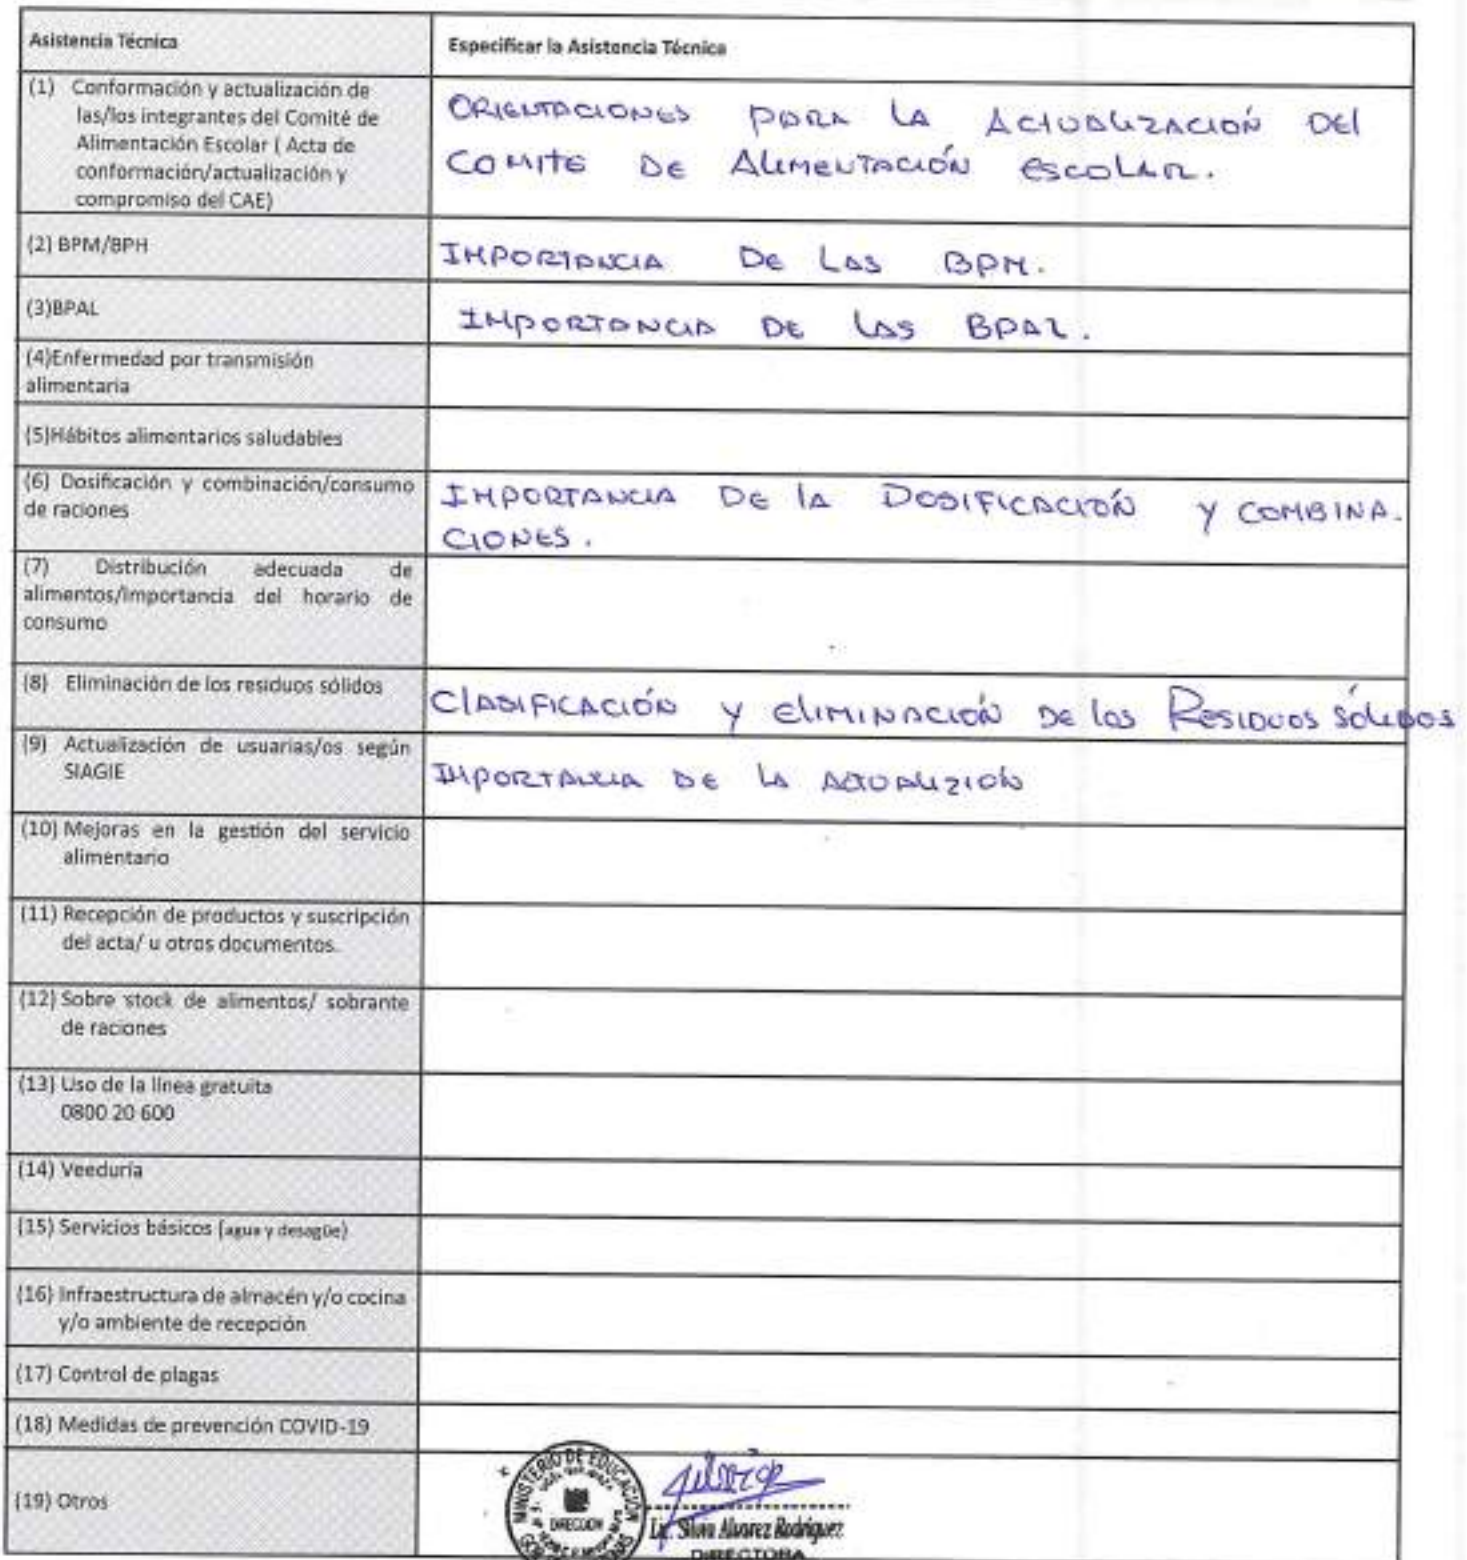 Asistencia Técnica
Especificar la Asistencia Técnica
(1) Conformación y actualización de
las/los integrantes del Comité de
Alimentación Escolar ( Acta de
conformación/actualización y
compromiso del CAE)
ORIENTACIONES PARA LA ACTUALIZACIÓN DEL
COMITE DE ALIMENTACIÓN ESCOLAR.
(2) BPM/BPH
IMPORTANCIA DE LAS BPM.
(3)BPAL
IMPORTANCIA DE LAS BPAL.
(4)Enfermedad por transmisión
alimentaria
(5)Hábitos alimentarios saludables
(6) Dosificación y combinación/consumo
de raciones
IMPORTANCIA DE LA DOSIFICACIÓN Y COMBINA.
CIONES.
(7) Distribución adecuada de
alimentos/Importancia del horario de
consumo
(8) Eliminación de los residuos sólidos
CLASIFICACIÓN Y ELIMINACIÓN DE LOS RESIDUOS SÓLIDOS
(9) Actualización de usuarias/os según
SIAGIE
IMPORTANCIA DE LA ACTUALIZIÓN
(10) Mejoras en la gestión del servicio
alimentario
(11) Recepción de productos y suscripción
del acta/ u otros documentos.
(12) Sobre stock de alimentos/ sobrante
de raciones
(13) Uso de la línea gratuita
0800 20 600
(14) Veeduría
(15) Servicios básicos (agua y desagüe)
(16) Infraestructura de almacén y/o cocina
y/o ambiente de recepción
(17) Control de plagas
(18) Medidas de prevención COVID-19
(19) Otros
MINISTERIO DE EDUCACIÓN
DIRECCION
Lic. Silvia Alvarez Rodriguez
DIRECTORA